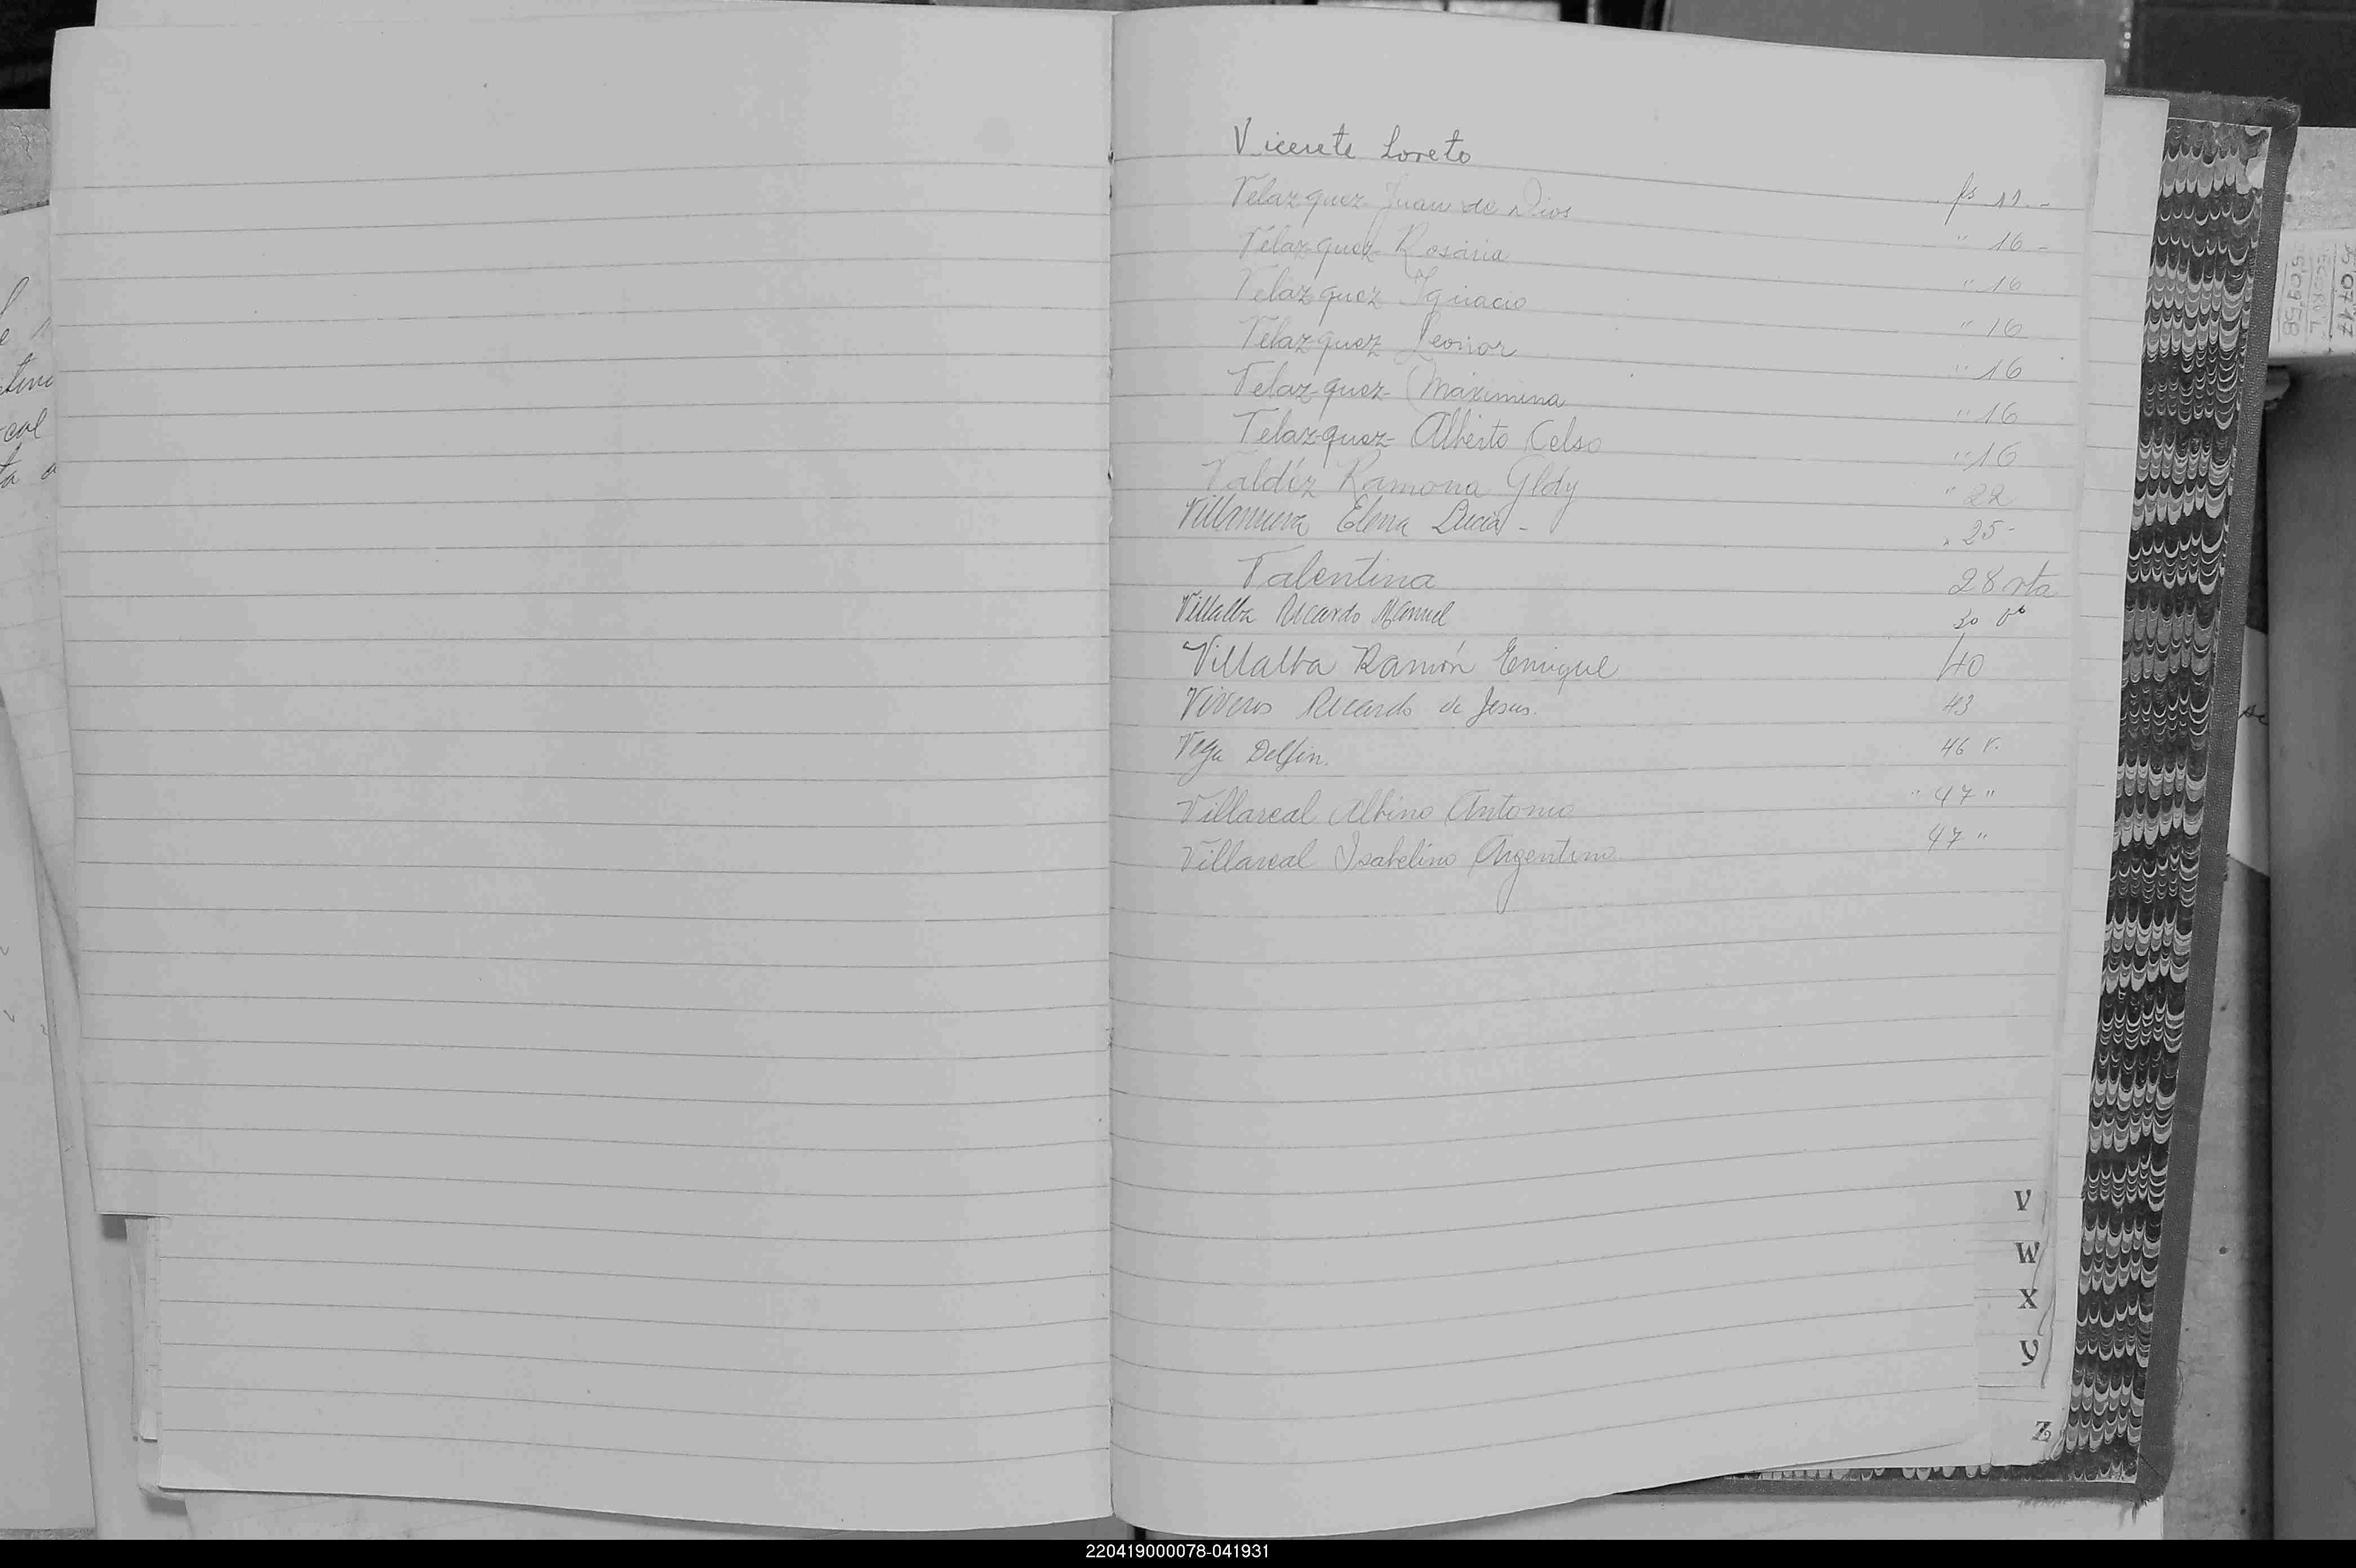 Vicente Loreto
Velazquez Juan de Dios fs 11 -
Velazquez Rosaria " 16 -
Velazquez Ignacio " 16
Velazquez Leonor " 16
Velazquez Maximina " 16
Velazquez Alberto Celso " 16
Valdéz Ramona Gldy " 16
Villanueva Elena Lucia - " 22
" 25 -
Valentina 28 vta
Villalba Ricardo Manuel 30 vo
Villalba Ramón Enrique 40
Viveros Ricardo de Jesus. 43
Vega Delfin. 46 v.
Villareal Albino Antonio " 47 "
Villareal Isabelino Argentino 47 "
V
W
X
Y
Z
220419000078-041931